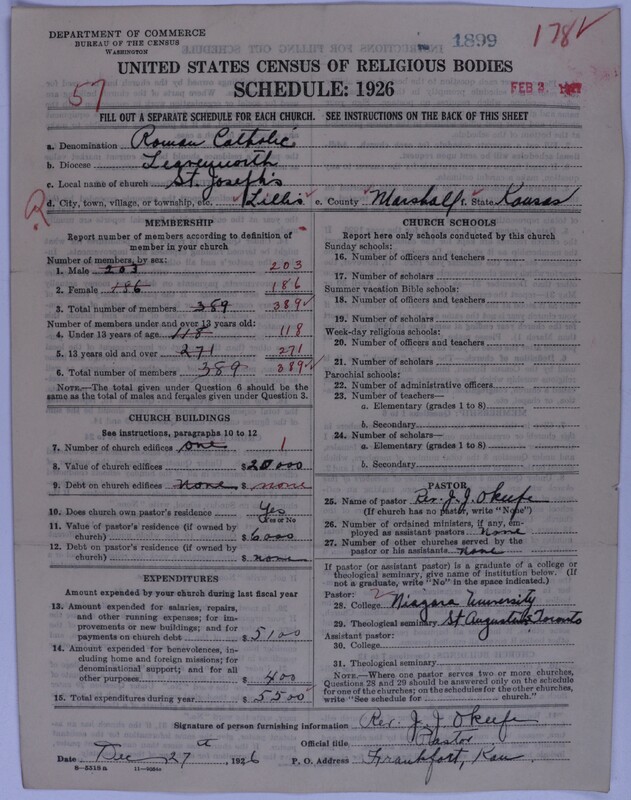 DEPARTMENT OF COMMERCE
BUREAU OF THE CENSUS
WASHINGTON
1899
178
UNITED STATES CENSUS OF RELIGIOUS BODIES
SCHEDULE: 1926
57
FEB 2
FILL OUT A SEPARATE SCHEDULE FOR EACH CHURCH. SEE INSTRUCTIONS ON THE BACK OF THIS SHEET
a. Denomination Roman Catholic
b. Diocese Leavenworth
c. Local name of church St. Joseph's
R
d. City, town, village, or township, etc. Lillis e. County Marshall f. State Kansas
MEMBERSHIP
Report number of members according to definition of
member in your church
Number of members, by sex:
1. Male 203 203
2. Female 186 186
3. Total number of members 389 389
Number of members under and over 13 years old:
4. Under 13 years of age 118 118
5. 13 years old and over 271 271
6. Total number of members 389 389
NOTE.—The total given under Question 6 should be the
same as the total of males and females given under Question 3.
CHURCH BUILDINGS
See instructions, paragraphs 10 to 12
7. Number of church edifices one 1
8. Value of church edifices $20000
9. Debt on church edifices none $ none
10. Does church own pastor's residence Yes
(Yes or No
11. Value of pastor's residence (if owned by
church) $6000
12. Debt on pastor's residence (if owned by
church) $ none
EXPENDITURES
Amount expended by your church during last fiscal year
13. Amount expended for salaries, repairs,
and other running expenses; for im-
provements or new buildings; and for
payments on church debt $5100
14. Amount expended for benevolences,
including home and foreign missions; for
denominational support; and for all
other purposes $400
15. Total expenditures during year $5500
CHURCH SCHOOLS
Report here only schools conducted by this church
Sunday schools:
16. Number of officers and teachers
17. Number of scholars
Summer vacation Bible schools:
18. Number of officers and teachers
19. Number of scholars
Week-day religious schools:
20. Number of officers and teachers
21. Number of scholars
Parochial schools:
22. Number of administrative officers
23. Number of teachers—
a. Elementary (grades 1 to 8)
b. Secondary
24. Number of scholars—
a. Elementary (grades 1 to 8)
b. Secondary
PASTOR
25. Name of pastor Rev. J. J. O'Keefe
(If church has no pastor, write "None")
26. Number of ordained ministers, if any, em-
ployed as assistant pastors none
27. Number of other churches served by the
pastor or his assistants none
If pastor (or assistant pastor) is a graduate of a college or
theological seminary, give name of institution below. (If
not a graduate, write "No" in the space indicated.)
Pastor:
28. College Niagara University
29. Theological seminary St Augustine Toronto
Assistant pastor:
30. College
31. Theological seminary
NOTE.—Where one pastor serves two or more churches,
Questions 28 and 29 should be answered only on the schedule
for one of the churches; on the schedules for the other churches,
write "See schedule for church."
Signature of person furnishing information Rev. J. J. O'Keefe
Official title Pastor
Date Dec 27th, 1926 P. O. Address Frankfort, Kan.
8-5518a